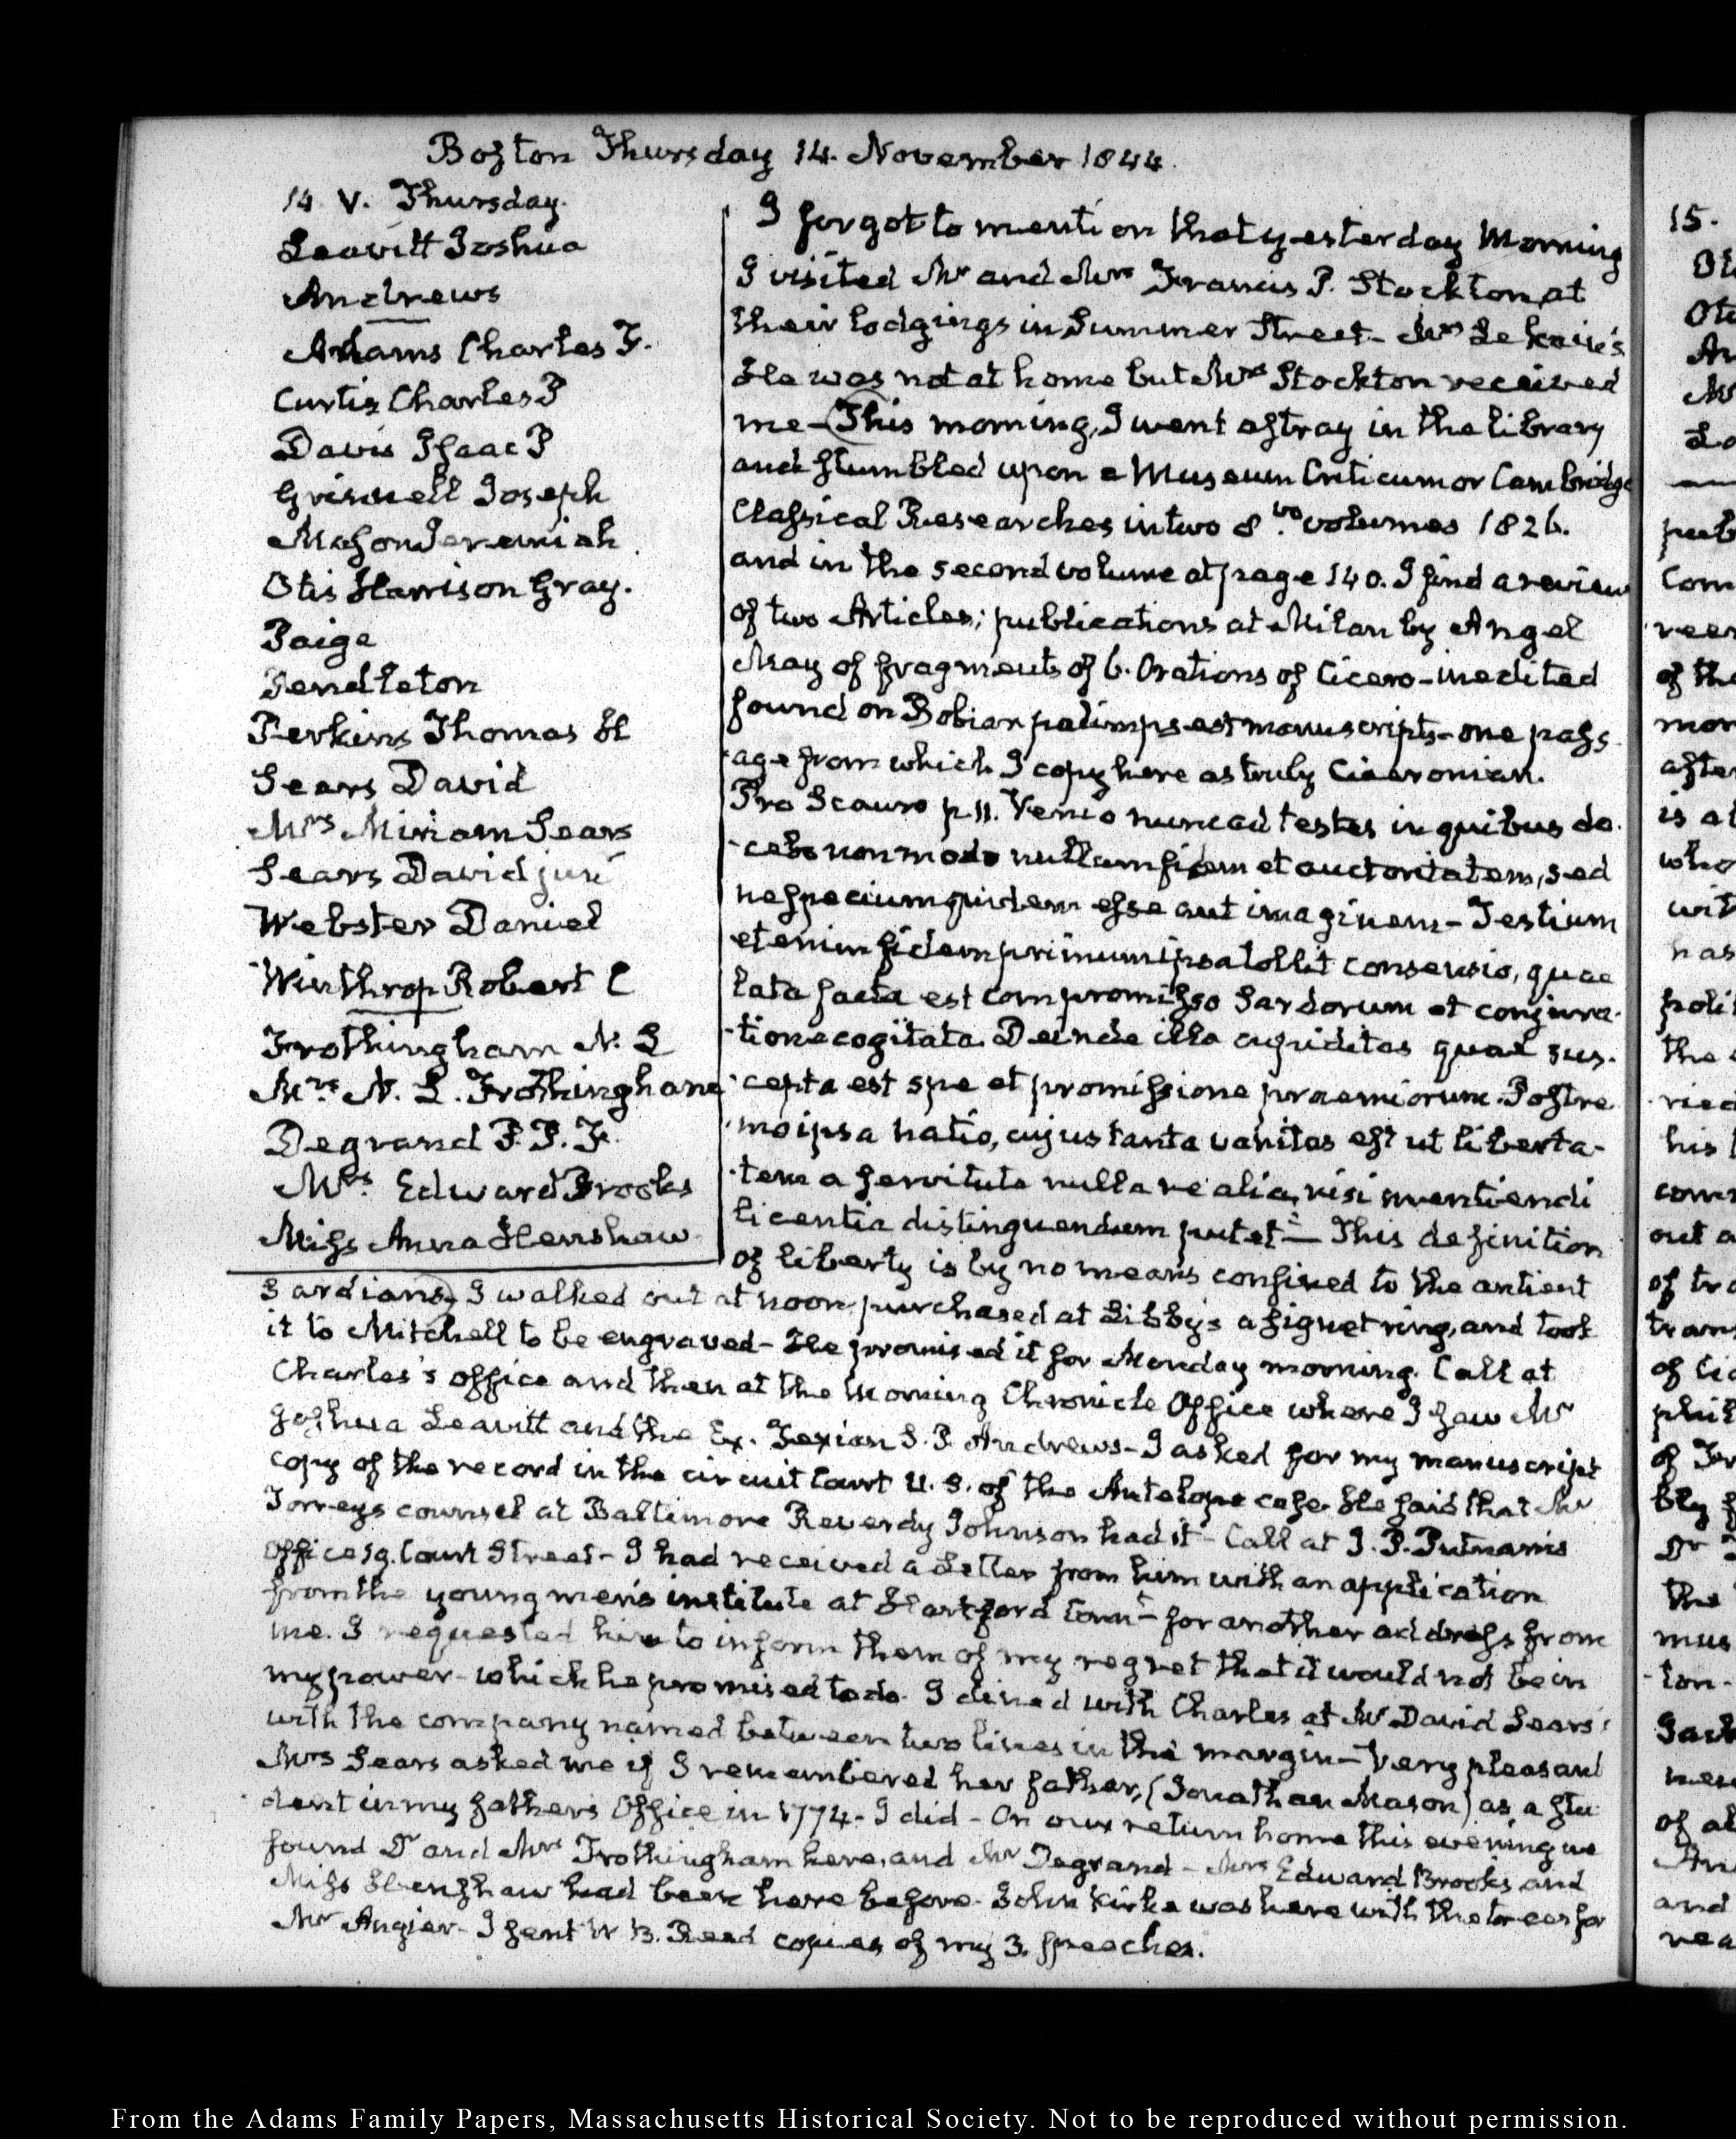 Boston Thursday 14. November 1844.
14. V. Thursday.
Leavitt Joshua
Andrews
Adams Charles F.
Curtis Charles P
Davis Isaac P
Grinnell Joseph
Mason Jeremiah
Otis Harrison Gray.
Paige
Pendleton
Perkins Thomas H
Sears David
Mrs Miriam Sears
Sears David junr
Webster Daniel
Winthrop Robert C
Frothingham N. L
Mrs N. L. Frothingham
Degrand P. P. F.
Mrs Edward Brooks
Miss Anna Henshaw
I forgot to mention that yesterday Morning
I visited Mr and Mrs Francis P. Stockton, at
their lodgings in Summer Street- Mrs
He was not at home but Mrs Stockton received
me- This morning, I went astray in the library
and stumbled upon a Museum Criticum or Cambridge
Classical Researches in two 8vo volumes 1826.
and in the second volume at page 140. I find a review
of two Articles; publications at Milan by Angel
May of fragments of 6. Orations of Cicero- inedited
found on Bobian palimpsest manuscripts- one pass
age from which I copy here as truly Ciceronian.
Pro Scauro p. 11. Venio nunc ad testes in quibus do
cebo non modo nullam fidem et auctoritatem, sed
ne speciem quidem esse aut imaginem- Testium
etenim fidem primum ipsa tollit consensio, quae
lata facta est compromisso Sardorum et conjura-
tione cogitata. Deinde illa cupiditas quae sus-
cepta est spe et promissione praemiorum. Postre
mo ipsa natio, cujus tanta vanitas est ut liberta-
tem a servitute nulla re alia, nisi mentiendi
licentia distinguendam putet- This definition
of liberty is by no means confined to the antient
Sardians, I walked out at noon, purchased at Libby's a signet ring, and took
it to Mitchell to be engraved- He promised it for Monday morning. Call at
Charles's office and then at the Morning Chronicle Office where I saw Mr
Joshua Leavitt and the Ex. Texian S. P. Andrews- I asked for my manuscript
copy of the record in the circuit Court U. S. of the Antelope case. He said that Mr
Torreys counsel at Baltimore Reverdy Johnson had it- Call at J. P. Putnam's
office 19. Court Street- I had received a Letter from him with an application
from the young men's institute at Hartford Connt- for another address from
me. I requested him to inform them of my regret that it would not be in
my power- which he promised to do. I dined with Charles at Mr David Sears's
with the company named between two lines in the margin- Very pleasant
Mrs Sears asked me if I remembered her father, (Jonathan Mason) as a stu
dent in my fathers Office in 1774- I did- On our return home this evening we
found Dr and Mrs Frothingham here, and Mr Degrand- Mrs Edward Brooks and
Miss Henshaw had been here before- John Kirke was here with the trees for
Mr Angier- I sent W B. Reed copies of my 3. speeches.
15.
From the Adams Family Papers, Massachusetts Historical Society. Not to be reproduced without permission.